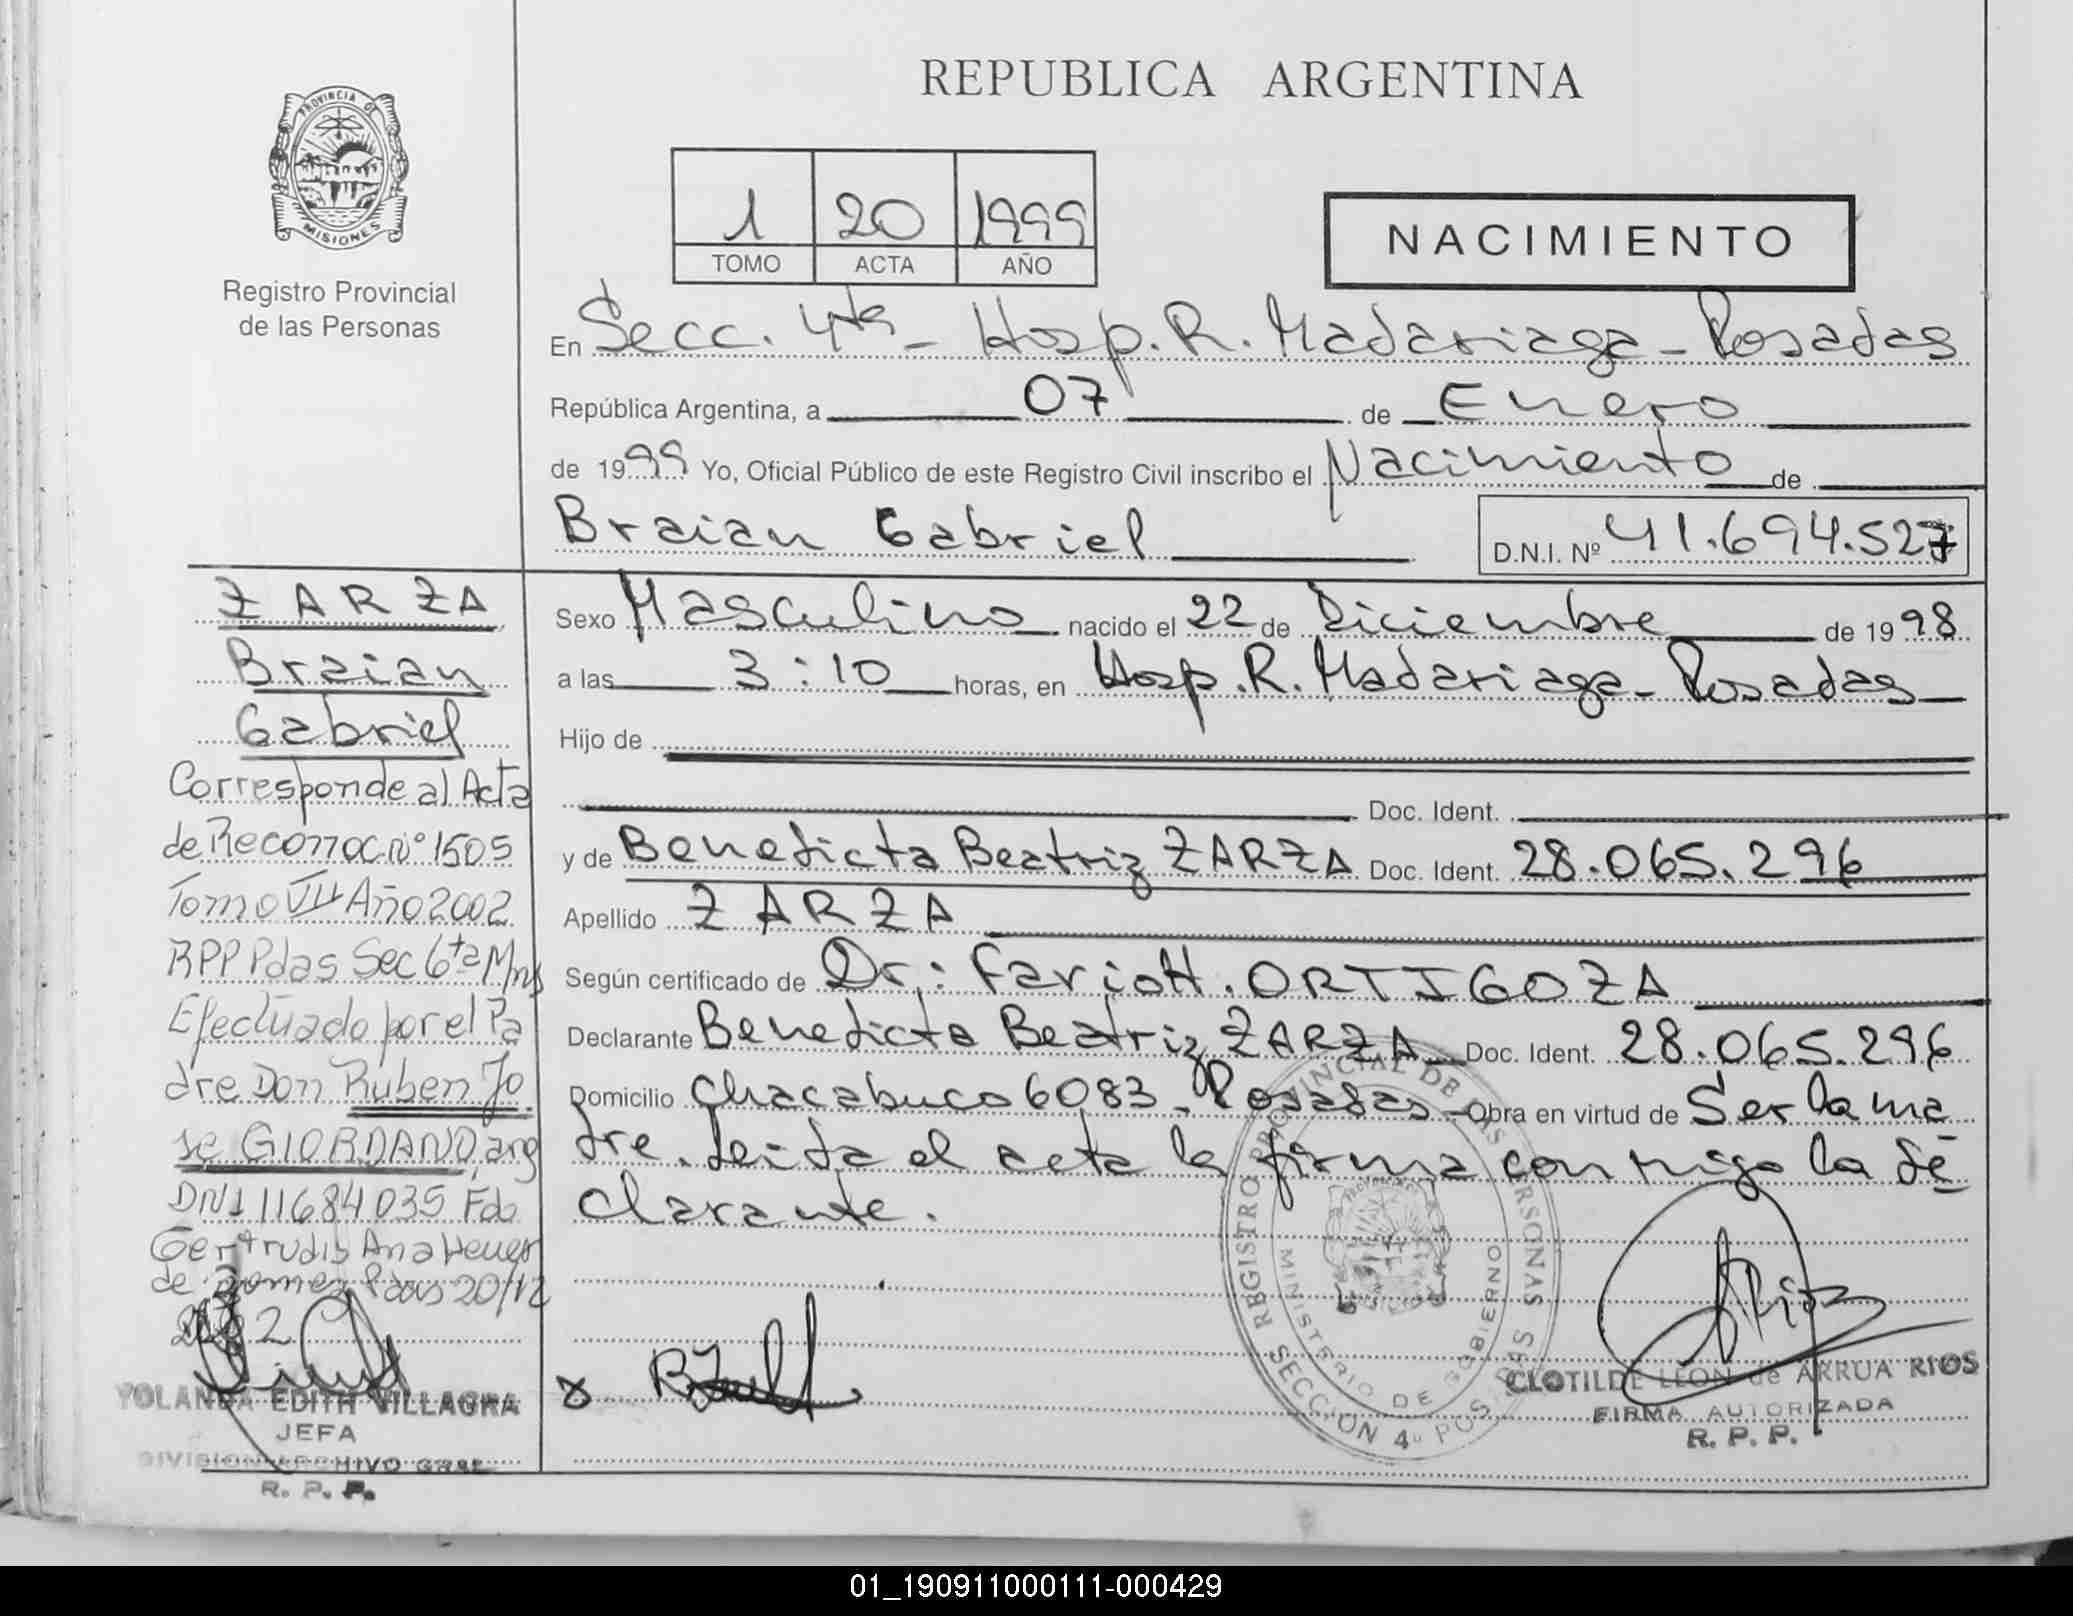 REPUBLICA ARGENTINA
PROVINCIA DE
MISIONES
Registro Provincial
de las Personas
1 20 1999
TOMO ACTA AÑO
NACIMIENTO
En Secc. 4ta - Hosp. R. Madariaga - Posadas
República Argentina, a 07 de Enero
de 1999 Yo, Oficial Público de este Registro Civil inscribo el Nacimiento de
Braian Gabriel D.N.I. Nº 41.694.527
Sexo Masculino nacido el 22 de Diciembre de 1998
a las 3:10 horas, en Hosp. R. Madariaga - Posadas
Hijo de
Doc. Ident.
y de Benedicta Beatriz ZARZA Doc. Ident. 28.065.296
Apellido ZARZA
Según certificado de Dr.: Fario H. ORTIGOZA
Declarante Benedicta Beatriz ZARZA Doc. Ident. 28.065.296
Domicilio Chacabuco 6083 - Posadas - Obra en virtud de Ser la ma
dre. Leida el acta la firma conmigo la de
clarante.
ZARZA
Braian
Gabriel
Corresponde al Acta
de Reconoc Nº 1505
Tomo VII Año 2002
RPP Pdas Sec 6ta Mns
Efectuado por el Pa
dre Don Ruben Jo
se GIORDANO, arg
DNI 11684035 Fdo
Gertrudis Ana
de Gomez Pdas 20/12
YOLANDA EDITH VILLAGRA
JEFA
DIVISION ARCHIVO GRAL
R. P. P.
REGISTRO PROVINCIAL DE LAS PERSONAS
MINISTERIO DE GOBIERNO
SECCION 4ª POSADAS
CLOTILDE LEON de ARRUA RIOS
FIRMA AUTORIZADA
R. P. P.
01_190911000111-000429